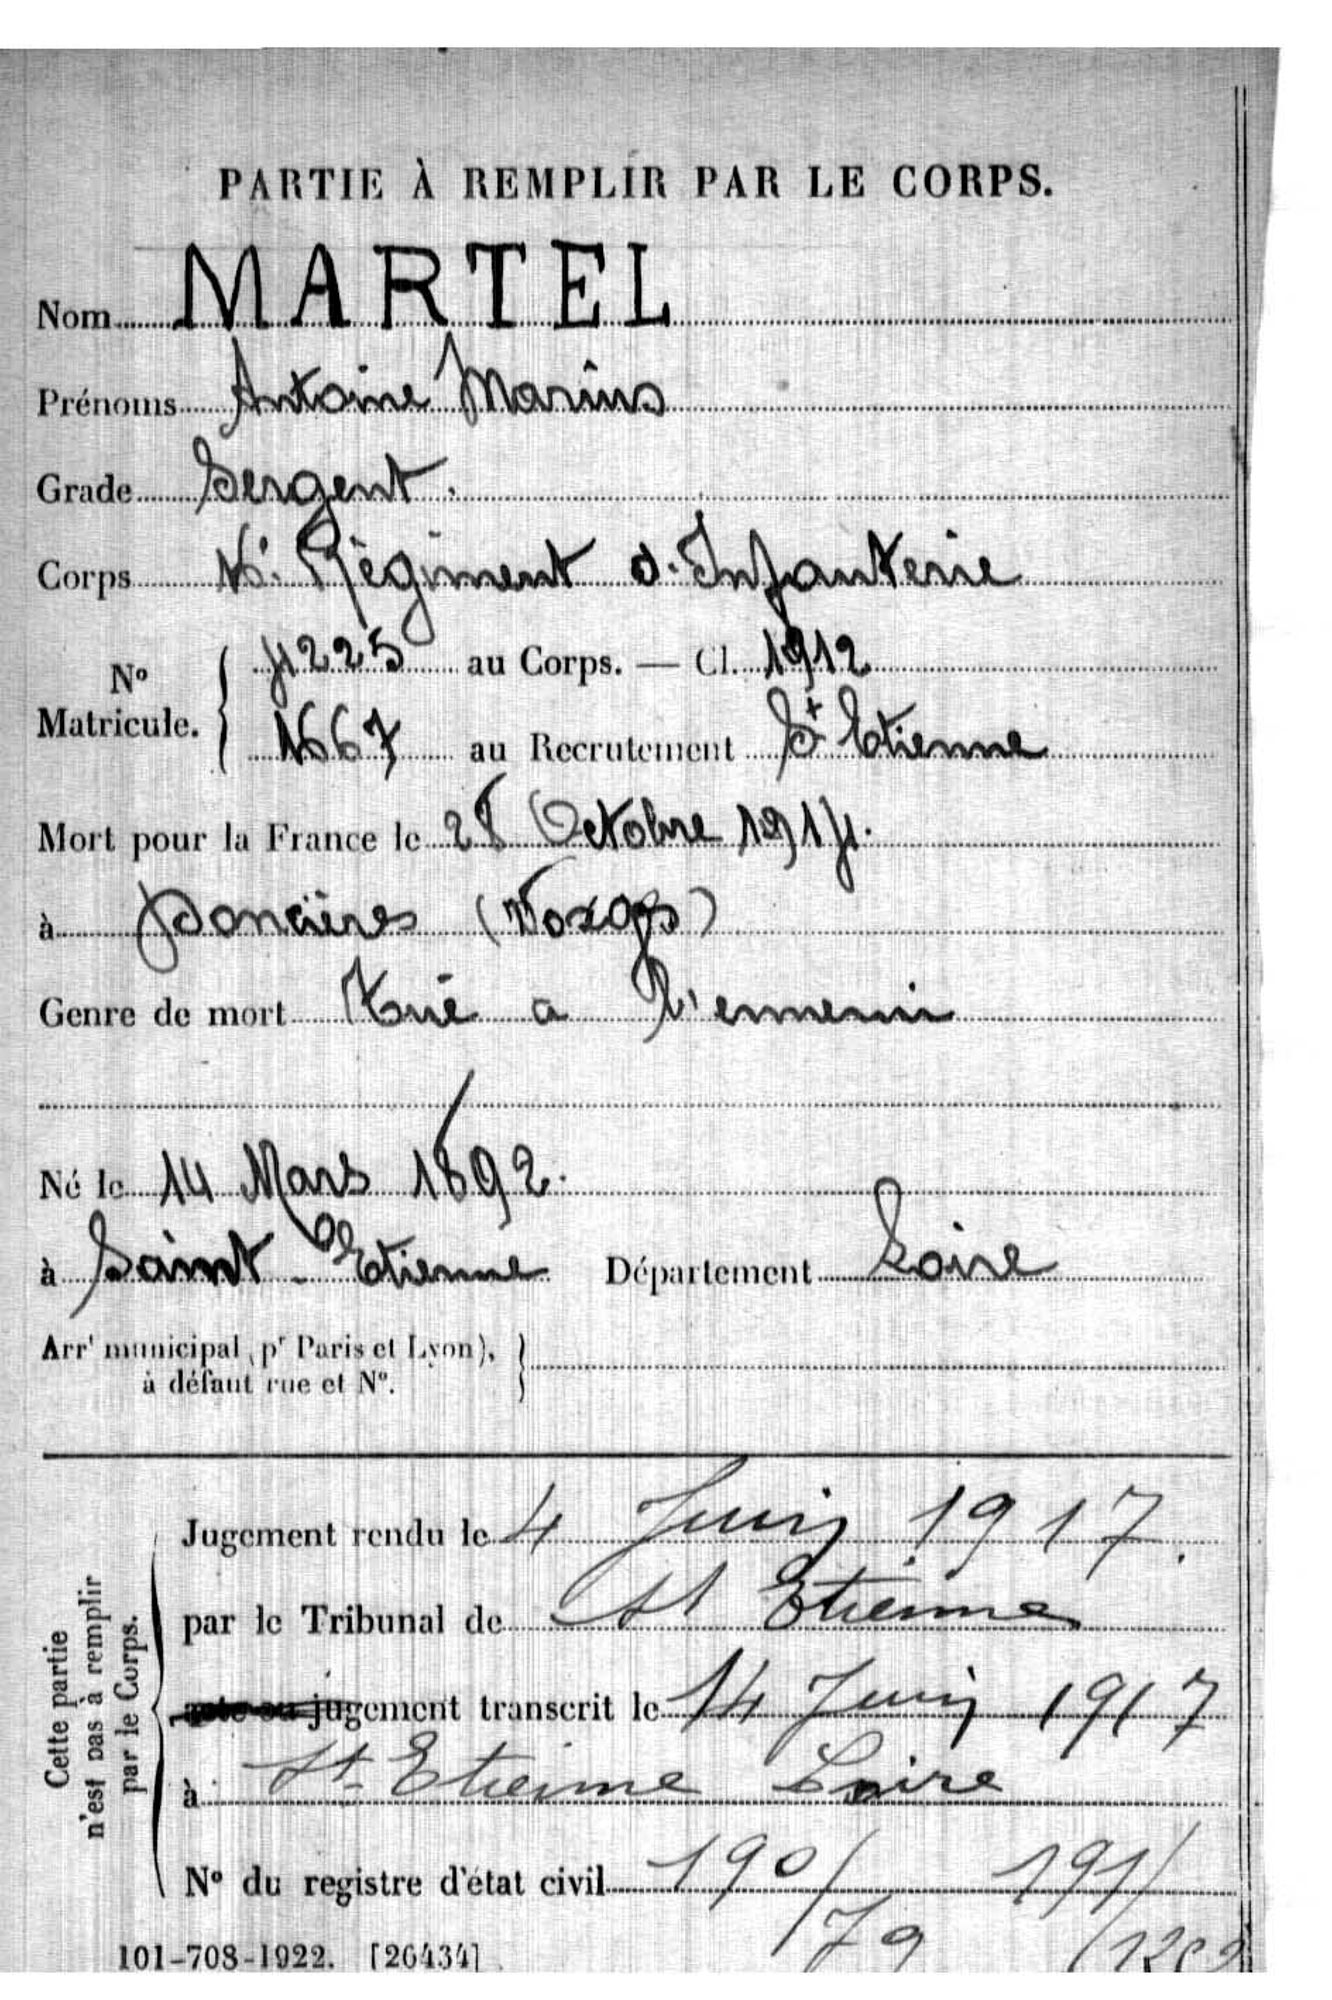 PARTIE À REMPLIR PAR LE CORPS.
Nom MARTEL
Prénoms Antoine Marius
Grade Sergent.
Corps 16e Régiment d'Infanterie
No Matricule. { 4225 au Corps. — Cl. 1912
1667 au Recrutement St Etienne
Mort pour la France le 28 Octobre 1914.
à Doncières (Vosges)
Genre de mort Tué a l'ennemi
Né le 14 Mars 1892.
à Saint-Etienne Département Loire
Arrt municipal (pr Paris et Lyon),
à défaut rue et No.
Cette partie
n'est pas à remplir
par le Corps.
Jugement rendu le 4 Juin 1917.
par le Tribunal de St Etienne
acte ou jugement transcrit le 14 Juin 1917
à St-Etienne Loire
No du registre d'état civil 190/ 191/
/79
101-708-1922. [26434]